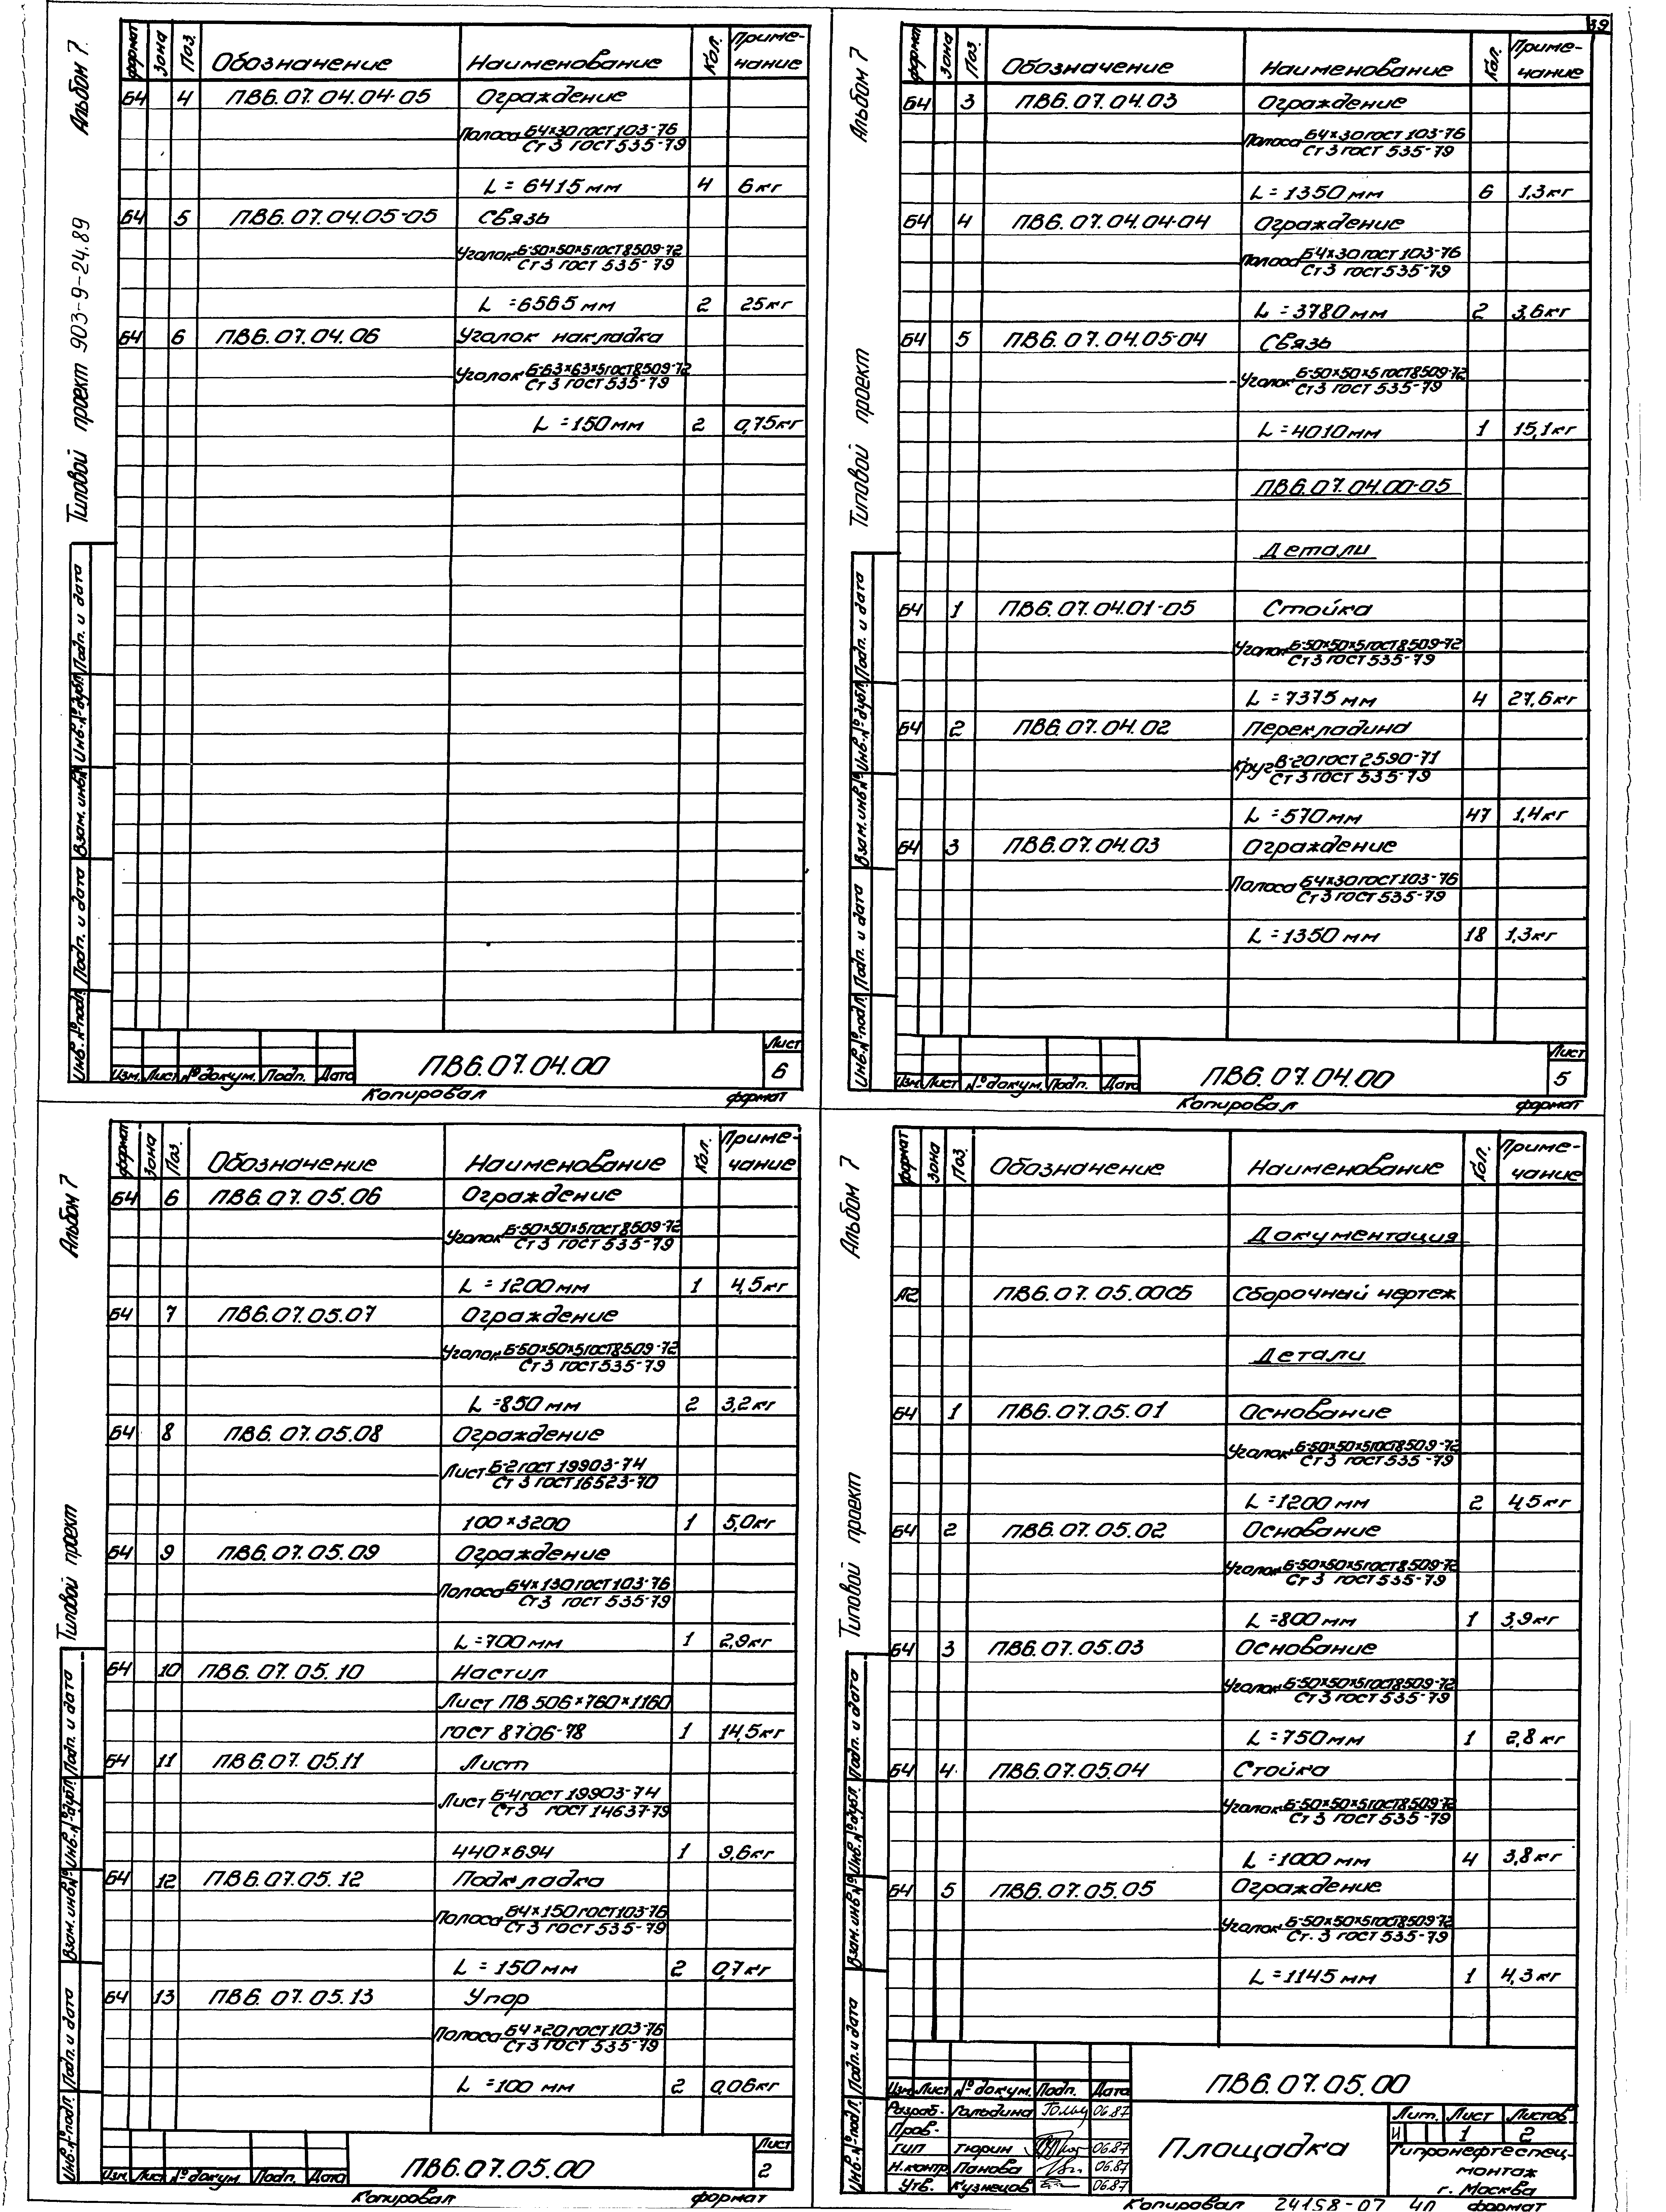 39
Альбом 7.
Типовой проект 903-9-24.89
формат Зона Поз. Обозначение Наименование Кол. Примечание
Б4 4 ПВ6.07.04.04-05 Ограждение
Полоса Б4×30 ГОСТ 103-76
Ст 3 ГОСТ 535-79
L = 6415 мм 4 6 кг
Б4 5 ПВ6.07.04.05-05 Связь
Уголок Б-50×50×5 ГОСТ 8509-72
Ст 3 ГОСТ 535-79
L = 6565 мм 2 25 кг
Б4 6 ПВ6.07.04.06 Уголок накладка
Уголок Б-63×63×5 ГОСТ 8509-72
Ст 3 ГОСТ 535-79
L = 150 мм 2 0,75 кг
Инв. № подл. Подп. и дата Взам. инв. № Инв. № дубл. Подп. и дата
Изм. Лист № докум. Подп. Дата
ПВ6.07.04.00
Лист
6
Копировал формат
Альбом 7
Типовой проект
формат Зона Поз. Обозначение Наименование Кол. Примечание
Б4 3 ПВ6.07.04.03 Ограждение
Полоса Б4×30 ГОСТ 103-76
Ст 3 ГОСТ 535-79
L = 1350 мм 6 1,3 кг
Б4 4 ПВ6.07.04.04-04 Ограждение
Полоса Б4×30 ГОСТ 103-76
Ст 3 ГОСТ 535-79
L = 3780 мм 2 3,6 кг
Б4 5 ПВ6.07.04.05-04 Связь
Уголок Б-50×50×5 ГОСТ 8509-72
Ст 3 ГОСТ 535-79
L = 4010 мм 1 15,1 кг
ПВ6.07.04.00-05
Детали
Б4 1 ПВ6.07.04.01-05 Стойка
Уголок Б-50×50×5 ГОСТ 8509-72
Ст 3 ГОСТ 535-79
L = 7375 мм 4 27,6 кг
Б4 2 ПВ6.07.04.02 Перекладина
Круг В-20 ГОСТ 2590-71
Ст 3 ГОСТ 535-79
L = 570 мм 47 1,4 кг
Б4 3 ПВ6.07.04.03 Ограждение
Полоса Б4×30 ГОСТ 103-76
Ст 3 ГОСТ 535-79
L = 1350 мм 18 1,3 кг
Инв. № подл. Подп. и дата Взам. инв. № Инв. № дубл. Подп. и дата
Изм. Лист № докум. Подп. Дата
ПВ6.07.04.00
Лист
5
Копировал формат
Альбом 7
Типовой проект
формат Зона Поз. Обозначение Наименование Кол. Примечание
Б4 6 ПВ6.07.05.06 Ограждение
Уголок Б-50×50×5 ГОСТ 8509-72
Ст 3 ГОСТ 535-79
L = 1200 мм 1 4,5 кг
Б4 7 ПВ6.07.05.07 Ограждение
Уголок Б-50×50×5 ГОСТ 8509-72
Ст 3 ГОСТ 535-79
L = 850 мм 2 3,2 кг
Б4 8 ПВ6.07.05.08 Ограждение
Лист Б-2 ГОСТ 19903-74
Ст 3 ГОСТ 16523-70
100×3200 1 5,0 кг
Б4 9 ПВ6.07.05.09 Ограждение
Полоса Б4×130 ГОСТ 103-76
Ст 3 ГОСТ 535-79
L = 700 мм 1 2,9 кг
Б4 10 ПВ6.07.05.10 Настил
Лист ПВ 506×760×1160
ГОСТ 8706-78 1 14,5 кг
Б4 11 ПВ6.07.05.11 Лист
Лист Б-4 ГОСТ 19903-74
Ст 3 ГОСТ 14637-79
440×694 1 9,6 кг
Б4 12 ПВ6.07.05.12 Подкладка
Полоса Б4×150 ГОСТ 103-76
Ст 3 ГОСТ 535-79
L = 150 мм 2 0,7 кг
Б4 13 ПВ6.07.05.13 Упор
Полоса Б4×20 ГОСТ 103-76
Ст 3 ГОСТ 535-79
L = 100 мм 2 0,06 кг
Инв. № подл. Подп. и дата Взам. инв. № Инв. № дубл. Подп. и дата
Изм. Лист № докум. Подп. Дата
ПВ6.07.05.00
Лист
2
Копировал формат
Альбом 7
Типовой проект
формат Зона Поз. Обозначение Наименование Кол. Примечание
Документация
А2 ПВ6.07.05.00СБ Сборочный чертеж
Детали
Б4 1 ПВ6.07.05.01 Основание
Уголок Б-50×50×5 ГОСТ 8509-72
Ст 3 ГОСТ 535-79
L = 1200 мм 2 4,5 кг
Б4 2 ПВ6.07.05.02 Основание
Уголок Б-50×50×5 ГОСТ 8509-72
Ст 3 ГОСТ 535-79
L = 800 мм 1 3,9 кг
Б4 3 ПВ6.07.05.03 Основание
Уголок Б-50×50×5 ГОСТ 8509-72
Ст 3 ГОСТ 535-79
L = 750 мм 1 2,8 кг
Б4 4 ПВ6.07.05.04 Стойка
Уголок Б-50×50×5 ГОСТ 8509-72
Ст 3 ГОСТ 535-79
L = 1000 мм 4 3,8 кг
Б4 5 ПВ6.07.05.05 Ограждение
Уголок Б-50×50×5 ГОСТ 8509-72
Ст. 3 ГОСТ 535-79
L = 1145 мм 1 4,3 кг
Инв. № подл. Подп. и дата Взам. инв. № Инв. № дубл. Подп. и дата
Изм. Лист № докум. Подп. Дата
ПВ6.07.05.00
Разраб. Гольдина 06.87
Пров.
ГИП Тюрин 06.87
Н.контр. Панова 06.87
Утв. Кузнецов 06.87
Площадка
Лит. Лист Листов
И 1 2
Гипронефтеспец-
монтаж
г. Москва
Копировал 24158-07 40 формат